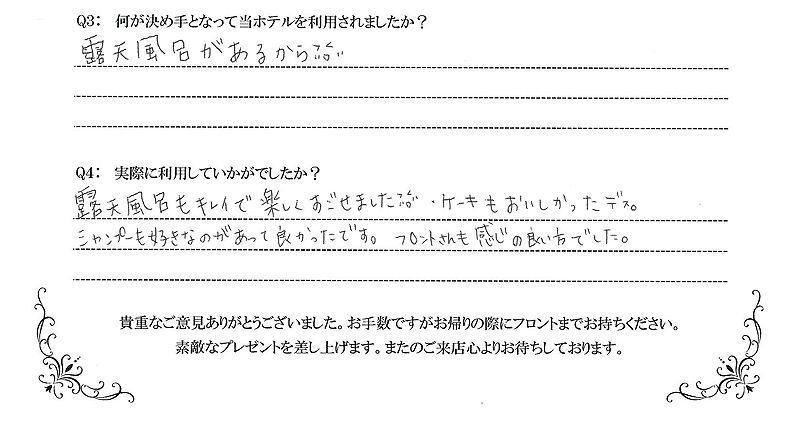 Q3: 何が決め手となって当ホテルを利用されましたか？
露天風呂があるから♨
Q4: 実際に利用していかがでしたか？
露天風呂もキレイで楽しくすごせました♨・ケーキもおいしかったデス。
シャンプーも好きなのがあって良かったです。フロントさんも感じの良い方でした。
貴重なご意見ありがとうございました。お手数ですがお帰りの際にフロントまでお持ちください。
素敵なプレゼントを差し上げます。またのご来店心よりお待ちしております。